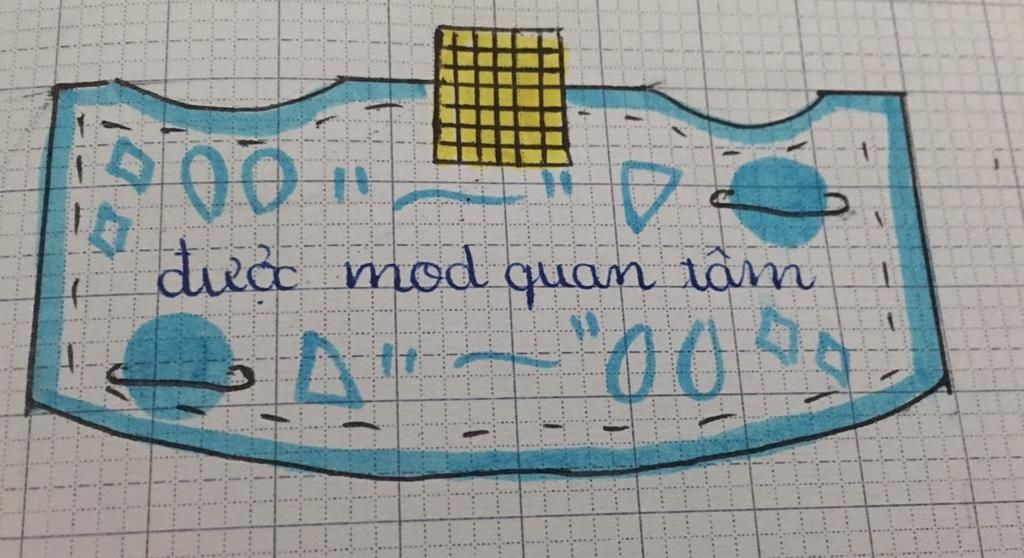 được mod quan tâm